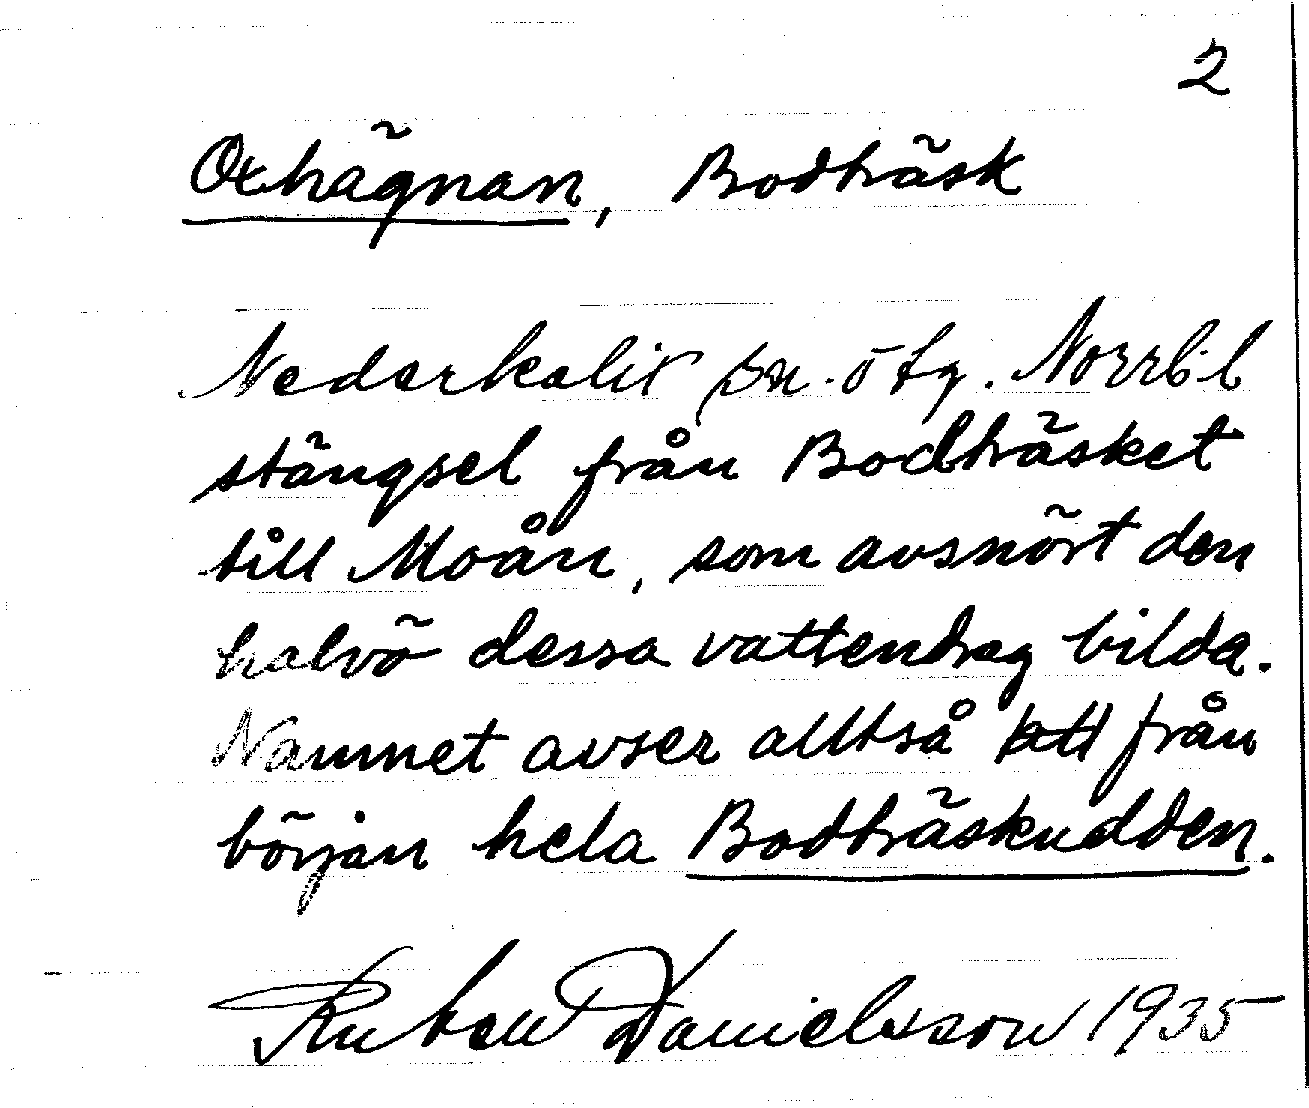 2
Oxhägnan, Bodträsk
Nederkalix sn. ö tg. Norrb.l
stängsel från Bodträsket
till Moån, som avsnört den
halvö dessa vattendrag bilda.
Namnet avser alltså att från
början hela Bodträskudden.
Ruben Danielsson 1935